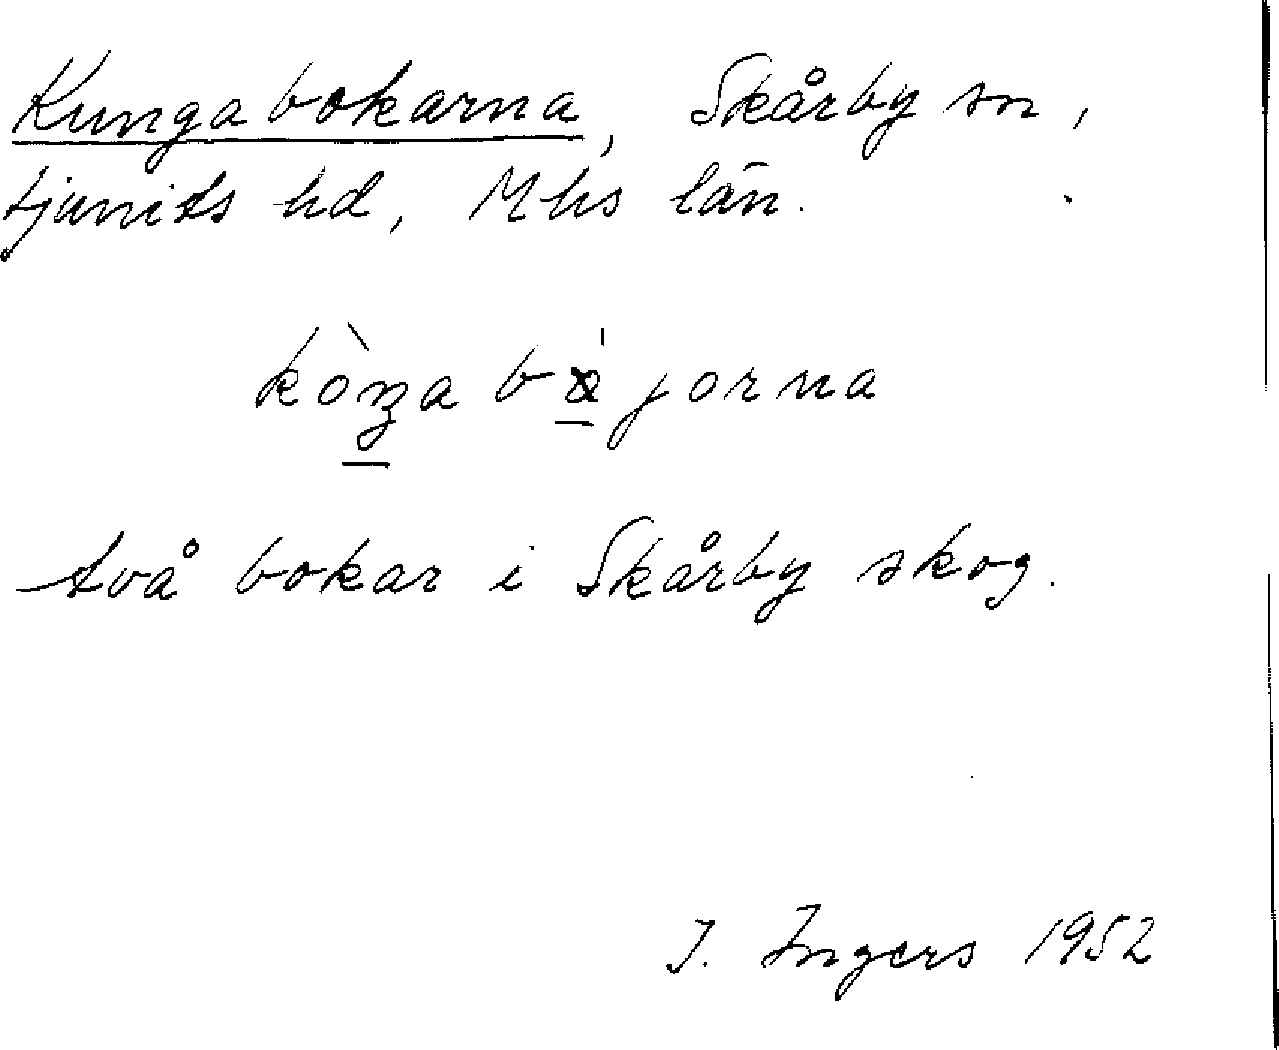 Kungabokarna, Skårby sn,
Ljunits hd, Mhs län.
kòŋa bǿjorna
två bokar i Skårby skog.
I. Ingers 1952